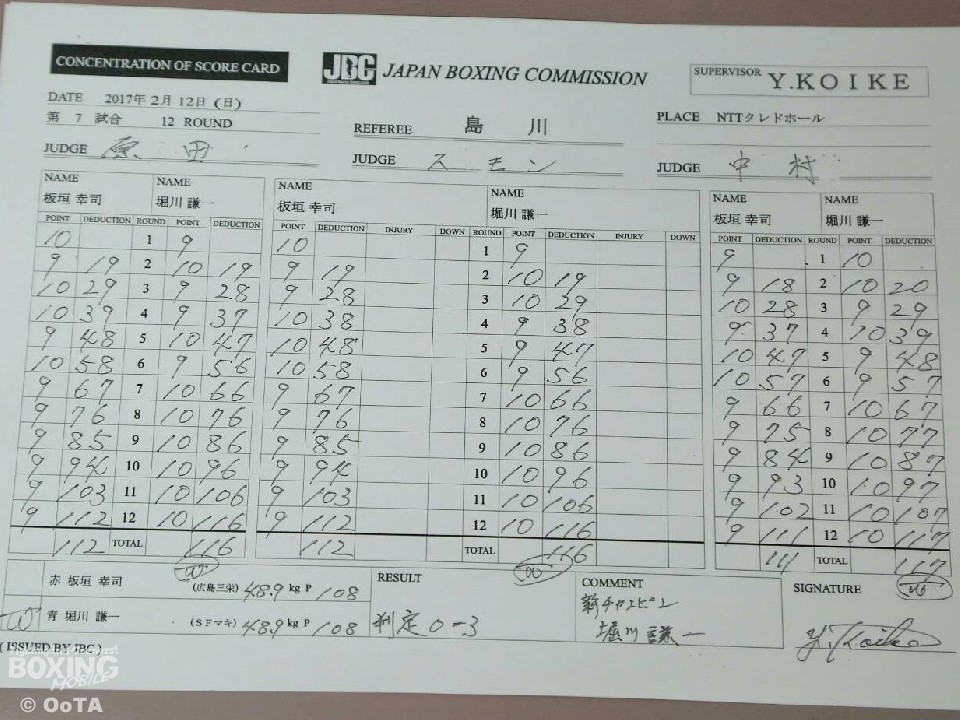 CONCENTRATION OF SCORE CARD
JBC JAPAN BOXING COMMISSION
SUPERVISOR Y.KOIKE
DATE 2017年 2月 12日 (日)
第 7 試合 12 ROUND
REFEREE 島 川
PLACE NTTクレドホール
JUDGE 原 田
JUDGE スモン
JUDGE 中 村
NAME NAME NAME NAME NAME NAME
板垣 幸司 堀川 謙一 板垣 幸司 堀川 謙一 板垣 幸司 堀川 謙一
POINT DEDUCTION ROUND POINT DEDUCTION POINT DEDUCTION INJURY DOWN ROUND POINT DEDUCTION INJURY DOWN POINT DEDUCTION ROUND POINT DEDUCTION
10 1 9 10 1 9 9 1 10
9 19 2 10 19 9 19 2 10 19 9 18 2 10 20
10 29 3 9 28 9 28 3 10 29 10 28 3 9 29
10 39 4 9 37 10 38 4 9 38 9 37 4 10 39
9 48 5 10 47 10 48 5 9 47 10 47 5 9 48
10 58 6 9 56 10 58 6 9 56 10 57 6 9 57
9 67 7 10 66 9 67 7 10 66 9 66 7 10 67
9 76 8 10 76 9 76 8 10 76 9 75 8 10 77
9 85 9 10 86 9 85 9 10 86 9 84 9 10 87
9 94 10 10 96 9 94 10 10 96 9 93 10 10 97
9 103 11 10 106 9 103 11 10 106 9 102 11 10 107
9 112 12 10 116 9 112 12 10 116 9 111 12 10 117
112 TOTAL 116 112 TOTAL 116 111 TOTAL 117
赤 板垣 幸司 (広島三栄) 48.9 kg P 108
RESULT
COMMENT
SIGNATURE
青 堀川 謙一 (SFマキ) 48.9 kg P 108
判定 0-3
新チャンピオン
堀川 謙一
Y. Koike
( ISSUED BY JBC )
BOXING
MOBILE
© OoTA